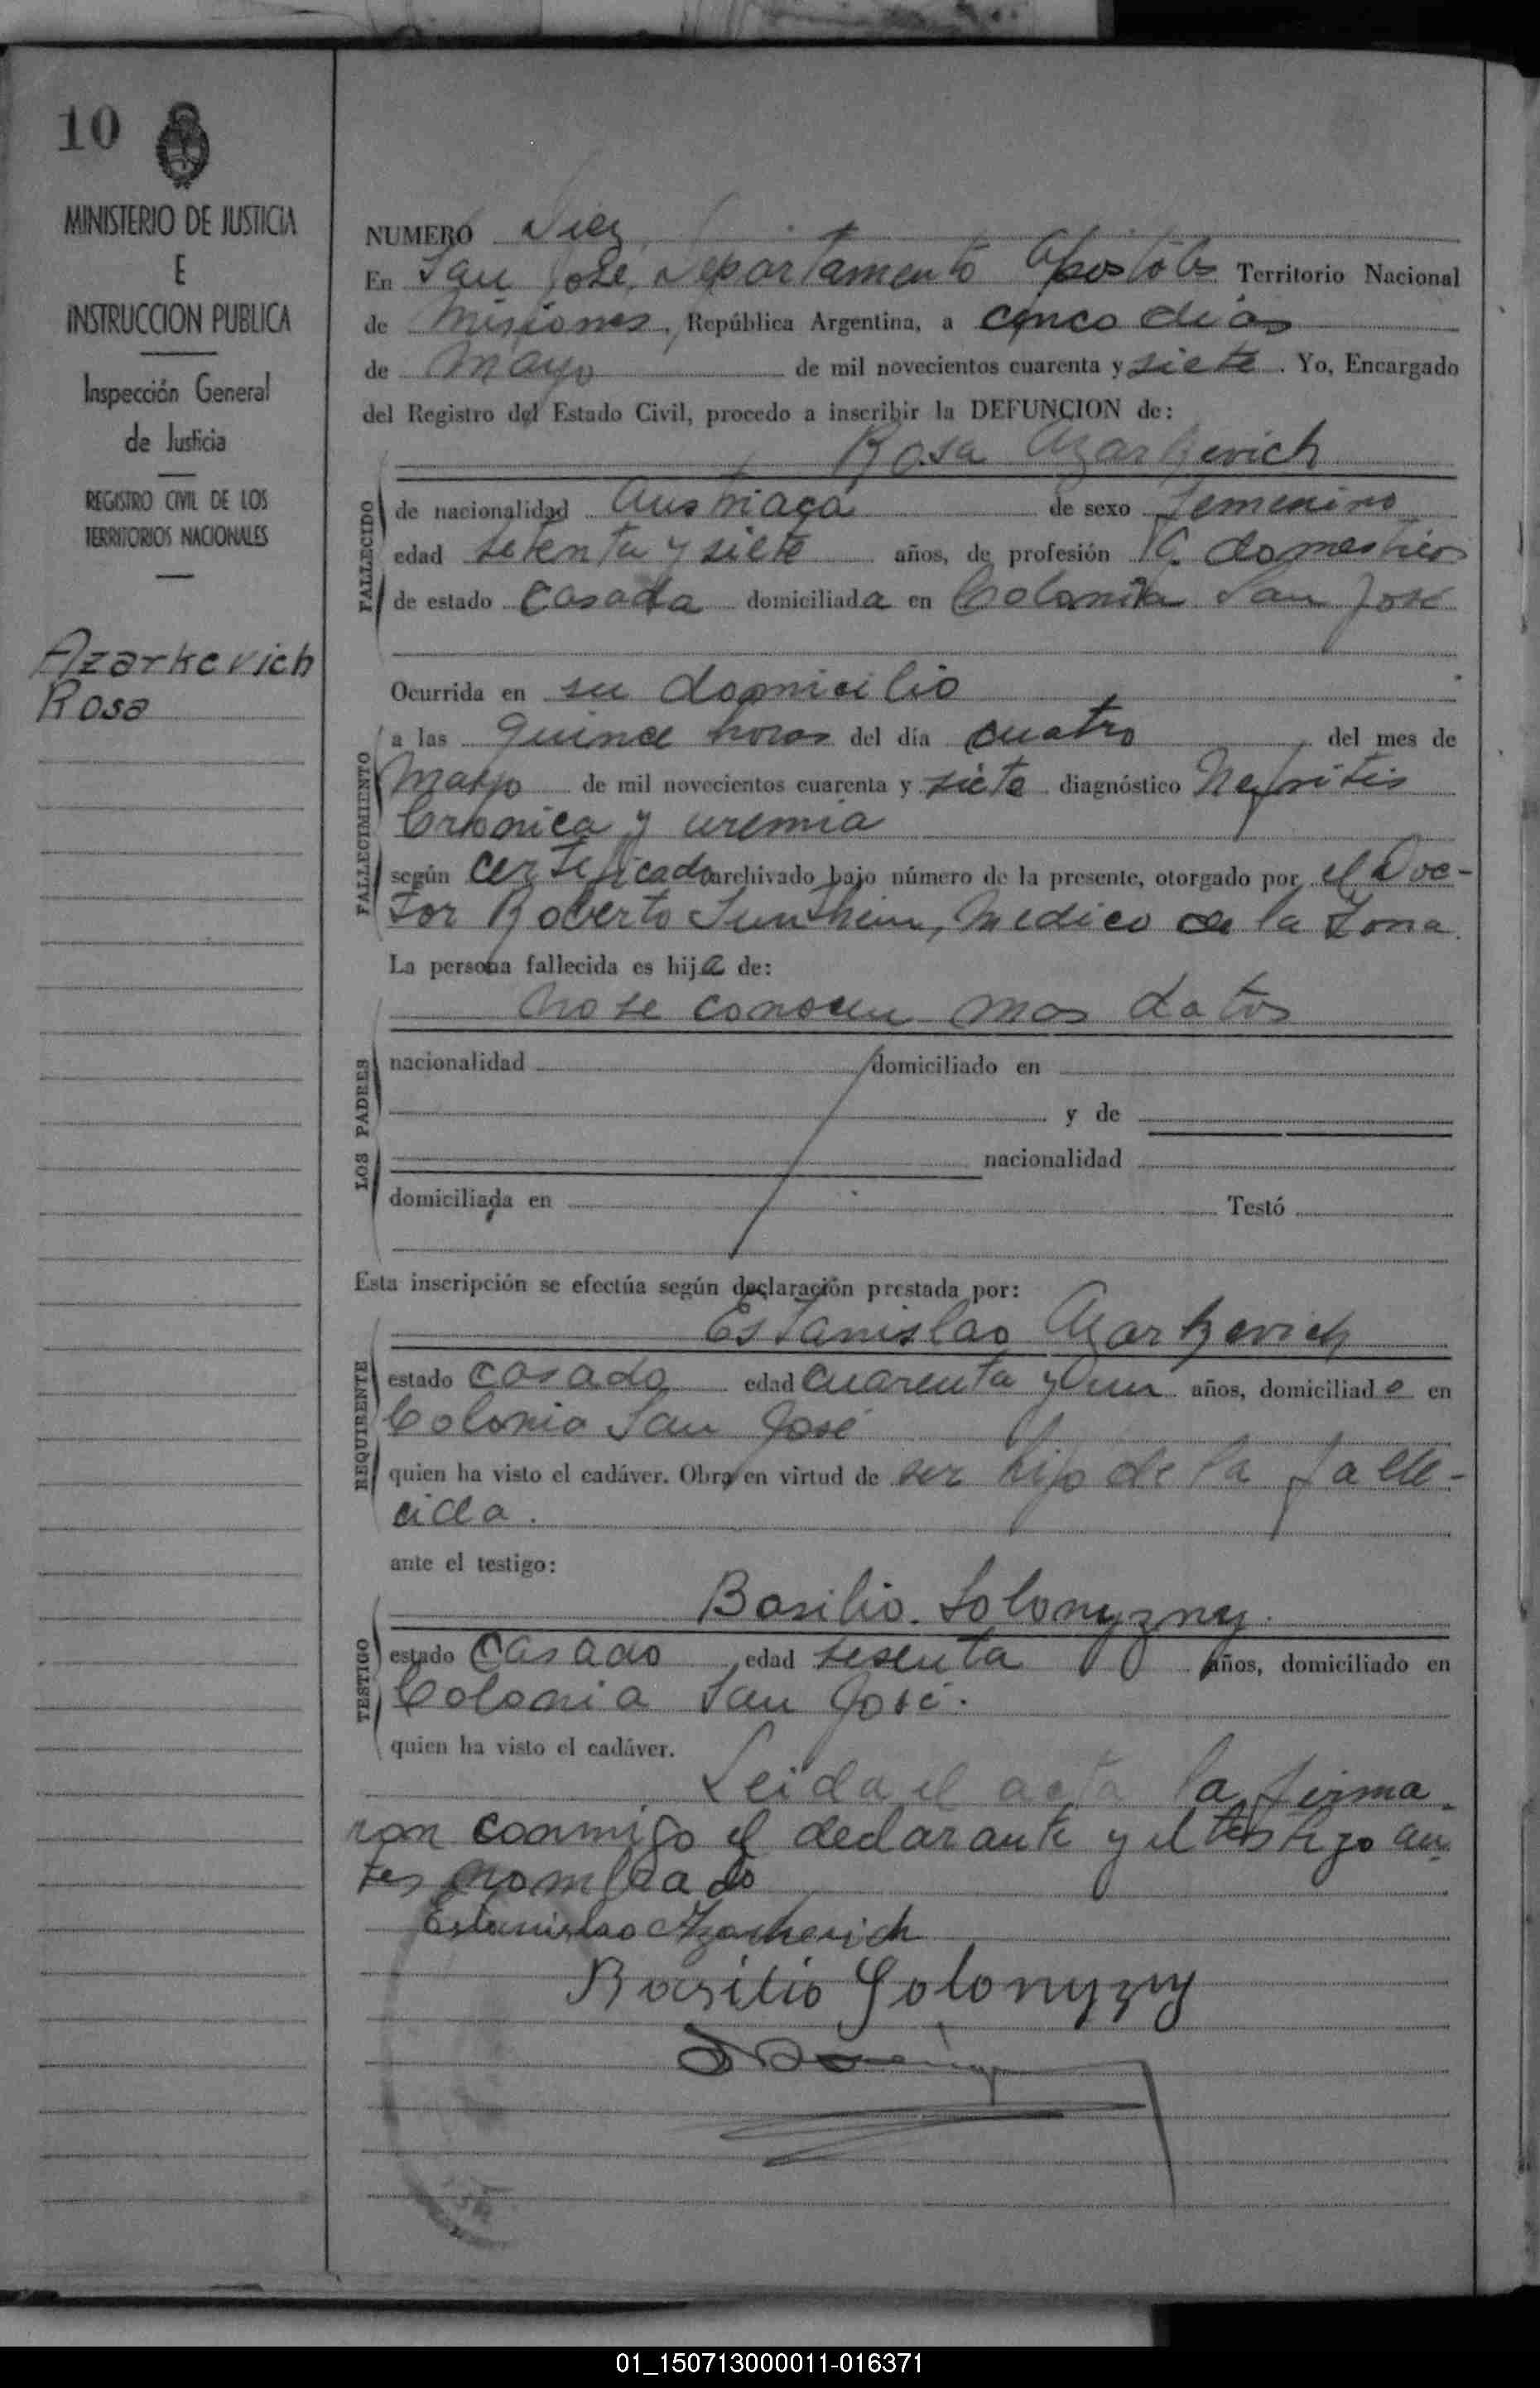 10
MINISTERIO DE JUSTICIA
E
INSTRUCCION PUBLICA
Inspección General
de Justicia
REGISTRO CIVIL DE LOS
TERRITORIOS NACIONALES
Azarkevich
Rosa
NUMERO Diez
En San José, Departamento Apostoles Territorio Nacional
de Misiones, República Argentina, a cinco dias
de Mayo de mil novecientos cuarenta y siete. Yo, Encargado
del Registro del Estado Civil, procedo a inscribir la DEFUNCION de:
Rosa Azarkevich
FALLECIDO
de nacionalidad Austriaca de sexo femenino
edad setenta y siete años, de profesión Q. domesticos
de estado casada domiciliada en Colonia San José
Ocurrida en su domicilio
FALLECIMIENTO
a las quince horas del día cuatro del mes de
Mayo de mil novecientos cuarenta y siete diagnóstico Nefritis
Cronica y uremia
según certificado archivado bajo número de la presente, otorgado por el Doc-
tor Roberto Sunthein, Medico de la Zona.
La persona fallecida es hija de:
No se conocen mas datos
LOS PADRES
nacionalidad domiciliado en
y de
nacionalidad
domiciliada en Testó
Esta inscripción se efectúa según declaración prestada por:
Estanislao Azarkevich
REQUIRENTE
estado casado edad cuarenta y un años, domiciliado en
Colonia San José
quien ha visto el cadáver. Obra en virtud de ser hijo de la falle-
cida.
ante el testigo:
Basilio Solonyzny.
TESTIGO
estado casado edad sesenta años, domiciliado en
Colonia San José.
quien ha visto el cadáver.
Leida el acta la firma-
ron conmigo el declarante y el testigo an-
tes nombrado
Estanislao Azarkevich
Basilio Solonyzny
01_150713000011-016371